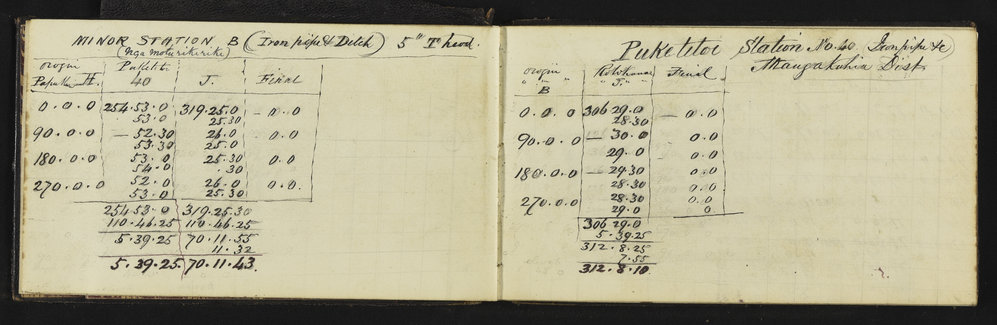 MINOR STATION B (Iron pipe & Ditch) 5" T head.
(Nga moturikirike)
Origin Puketitoi
Papakura H. 40 J. Final
0.0.0 254.53.0 319.25.0 – 0.0
53.0 25.30
90.0.0 – 52.30 26.0 0.0
53.30 25.0
180.0.0 53.0 25.30 0.0
54.0 .30
270.0.0 52.0 26.0 0.0.
53.0 25.30
254.53.0 319.25.30
110.46.25 110.46.25
5.39.25 70.11.55
11.32
5.39.25. 70.11.43.
Puketitoi Station No. 40. Iron pipe &c)
Mangakahia Dist.
Origin Final
" " " " J. " "
B
0.0.0 306 29.0 – 0.0
28.30
90.0.0 – 30.0 0.0
29.0 0.0
180.0.0 29.30 0.0
28.30 0.0
270.0.0 28.30 0.0
29.0 0
306 29.0
5.39.25
312.8.25
7.55
312.8.10.